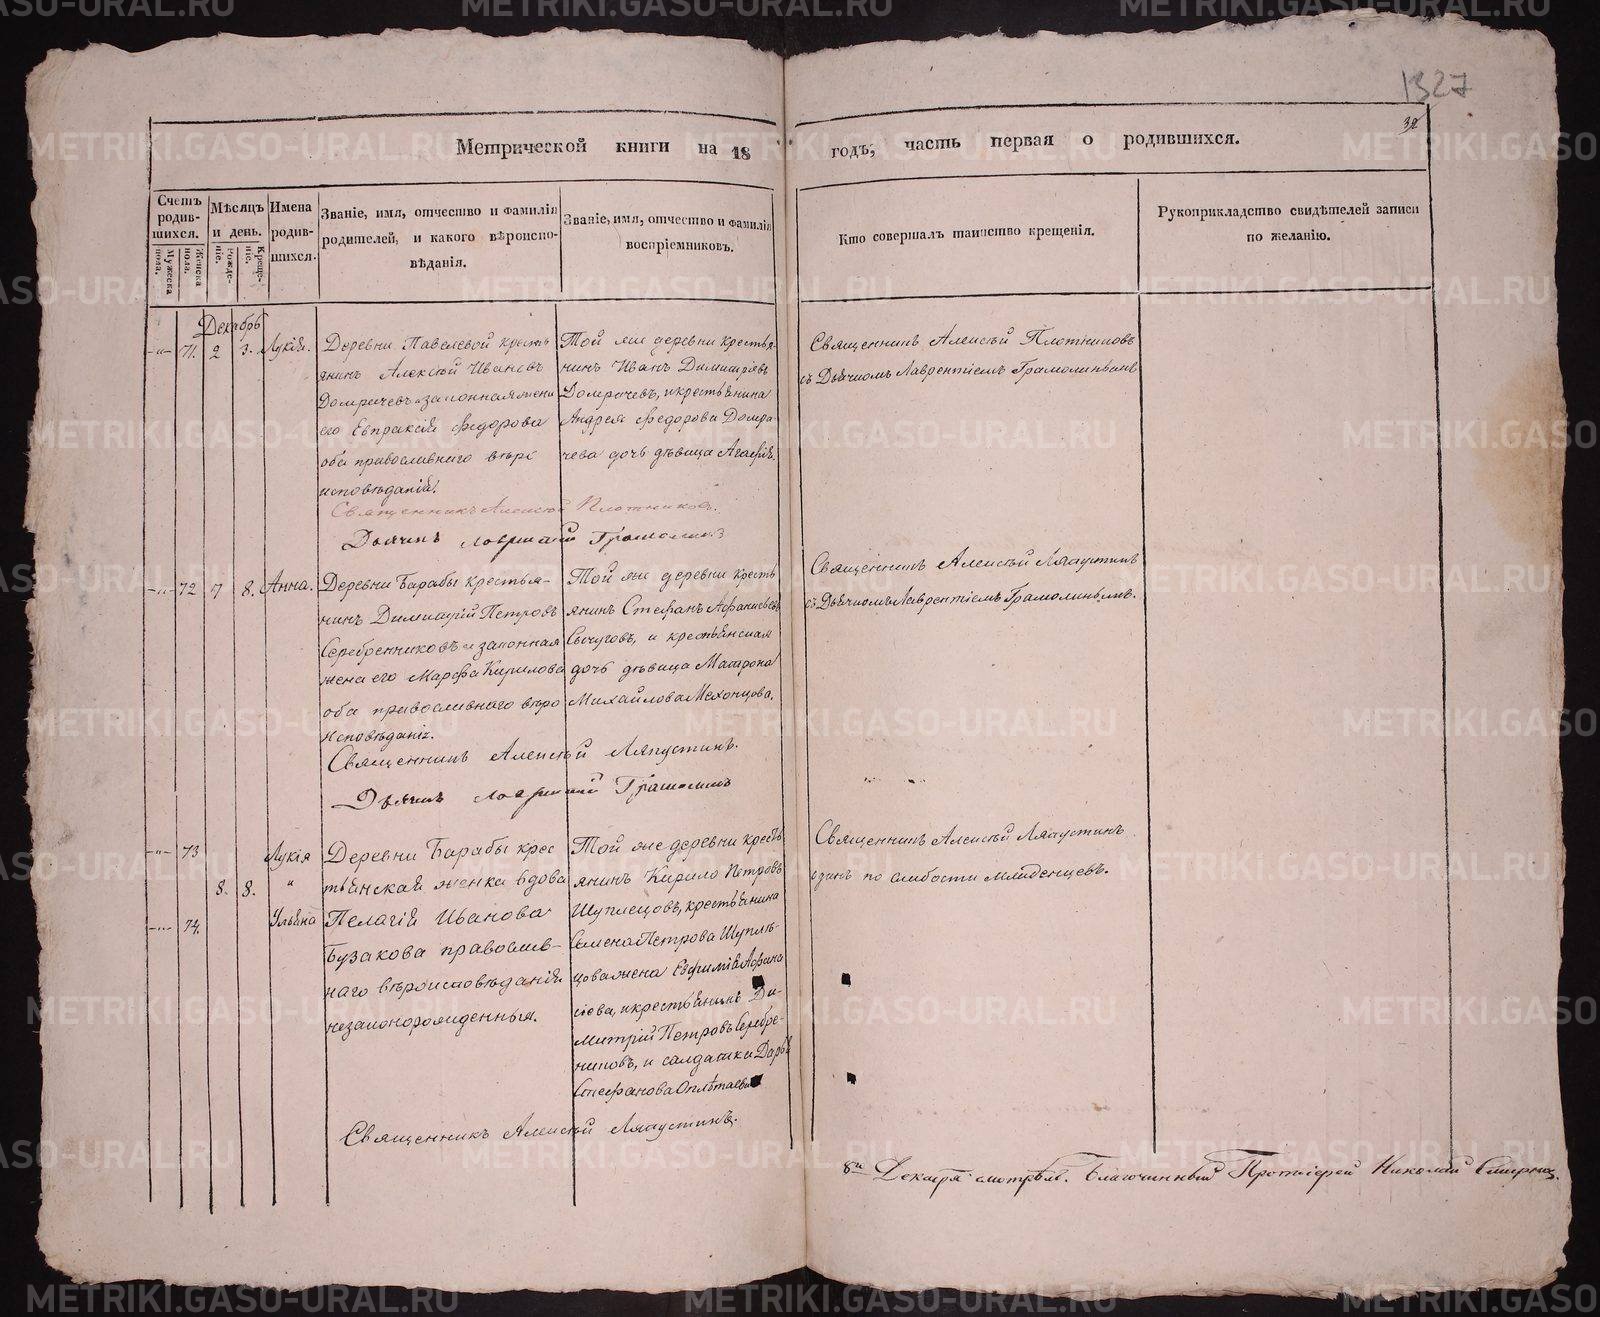 1327
32
Метрической книги на 18 годъ, часть первая о родившихся.
Счетъ родившихся.
Мужеска пола.
Женска пола.
Мѣсяцъ и день.
Рожденіе.
Крещеніе.
Имена родившихся.
Званіе, имя, отчество и фамилія родителей, и какого вѣроисповѣданія.
Званіе, имя, отчество и фамилія воспріемниковъ.
Кто совершалъ таинство крещенія.
Рукоприкладство свидѣтелей записи по желанію.
Декабрь
-"- 71. 2 3. Лукія.
Деревни Павлевой кресть
янинъ Алексѣй Ивановъ
Домрачевъ и законная жена
его Евпраксія Федорова
оба православнаго вѣро
исповѣданія.
Той же деревни крестья-
нинъ Иванъ Димитріевъ
Домрачевъ, и крестьянина
Андрея Федорова Домра-
чева дочь дѣвица Агафія.
Священникъ Алексѣй Плотниковъ
съ Дьячкомъ Лаврентіемъ Грамолинымъ
Священникъ Алексѣй Плотниковъ.
Дьячекъ Лаврентій Грамолинъ
-"- 72 7 8. Анна.
Деревни Барабы крестья-
нинъ Димитрій Петровъ
Серебренниковъ и законная
жена его Марфа Кирилова
оба православнаго вѣро
исповѣданія.
Той же деревни кресть
янинъ Стефанъ Афанасьевъ
Сычуговъ, и крестьянская
дочь дѣвица Матрона
Михайлова Мехонцова.
Священникъ Алексѣй Ляпустинъ
съ Дьячкомъ Лаврентіемъ Грамолинымъ.
Священникъ Алексѣй Ляпустинъ.
Дьячекъ Лаврентій Грамолинъ
-"- 73 Лукія
" 8. 8.
-"- 74. Ульяна
Деревни Барабы крес
тьянская женка вдова
Пелагія Иванова
Бузакова православ-
наго вѣроисповѣданія
незаконорожденныя.
Той же деревни кресть
янинъ Кирило Петровъ
Шуплецовъ, крестьянина
Семена Петрова Шупле-
цова жена Евфимія Афана
сіева, и крестьянинъ Ди-
митрій Петровъ Серебре-
никовъ, и салдатка Дарья
Стефанова
Священникъ Алексѣй Ляпустинъ
одинъ по слабости младенцевъ.
Священникъ Алексѣй Ляпустинъ.
8го Декабря смотрѣлъ. Благочинный Протоіерей Николай
METRIKI.GASO-URAL.RU